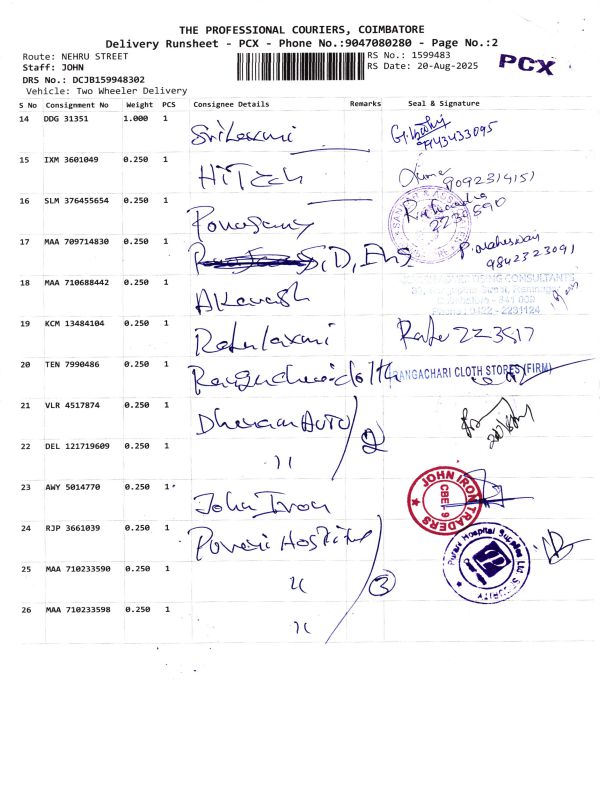 THE PROFESSIONAL COURIERS, COIMBATORE
Delivery Runsheet - PCX - Phone No.:9047080280 - Page No.:2
Route: NEHRU STREET
RS No.: 1599483
Staff: JOHN
RS Date: 20-Aug-2025
PCX
DRS No.: DCJB159948302
Vehicle: Two Wheeler Delivery
S No Consignment No Weight PCS Consignee Details Remarks Seal & Signature
14 DDG 31351 1.000 1 SriLaxmi 9143433095
15 IXM 3601049 0.250 1 HiTech 9092314151
16 SLM 376455654 0.250 1 2230590
17 MAA 709714830 0.250 1 S,D,Ens P. maheswari 9842323091
18 MAA 710688442 0.250 1 Akavash CONSULTANTS
19 KCM 13484104 0.250 1 Rate 223517
20 TEN 7990486 0.250 1 RANGACHARI CLOTH STORES (FIRM)
21 VLR 4517874 0.250 1 AUTO 2
22 DEL 121719609 0.250 1 11
23 AWY 5014770 0.250 1 John Iron JOHN IRON TRADERS CBE-9
24 RJP 3661039 0.250 1 Purani Hospital Purani Hospital Supplies Ltd SECURITY
25 MAA 710233590 0.250 1 11 3
26 MAA 710233598 0.250 1 11